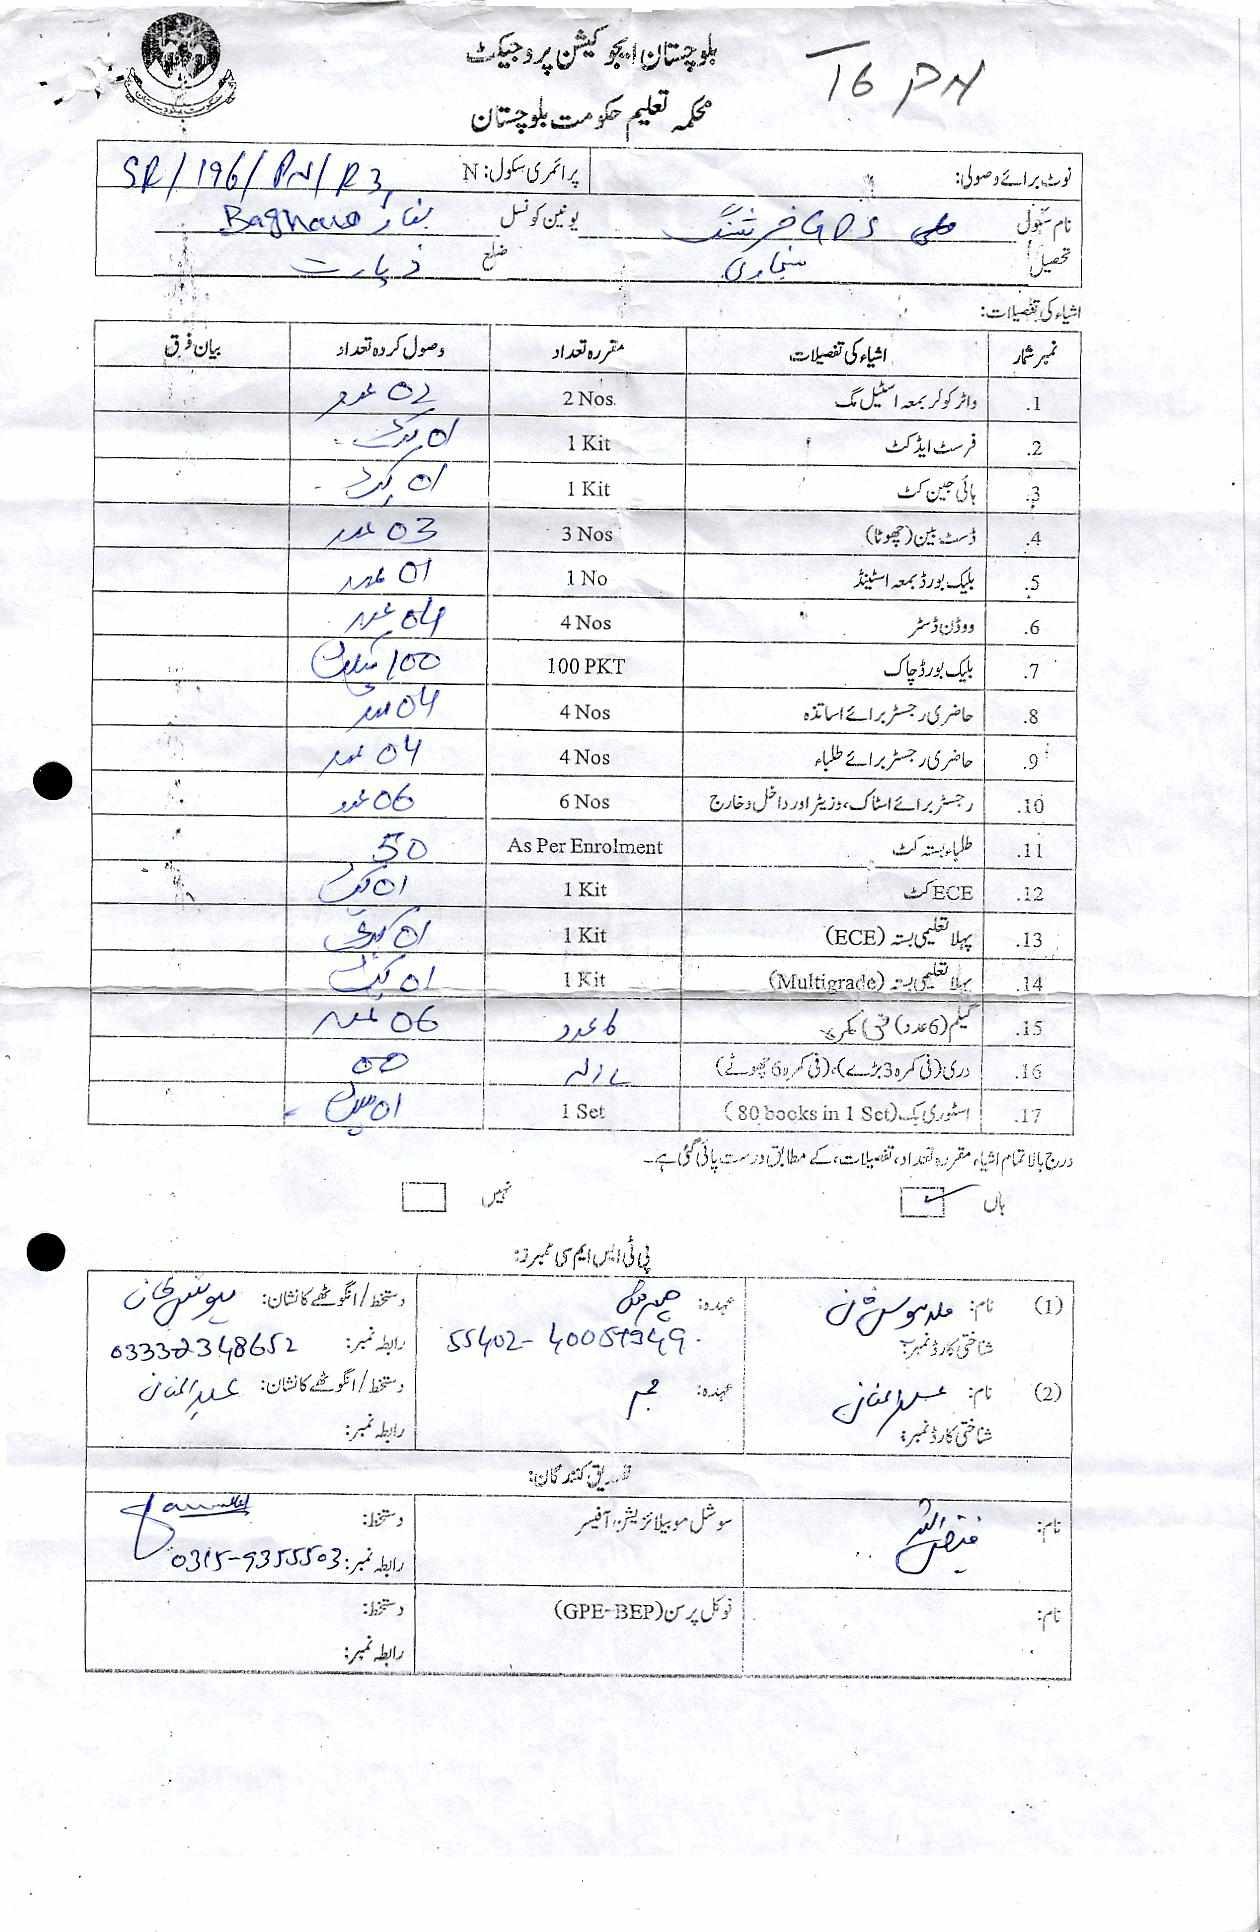 بلوچستان ایجوکیشن پروجیکٹ
T6 PN
محکمہ تعلیم حکومت بلوچستان
نوٹ برائے وصولی: پرائمری سکول: N SR/196/PN/R3
نام سکول GDS یونین کونسل Baghao
تحصیل سنجاوی ضلع زیارت
اشیاء کی تفصیلات:
نمبر شمار اشیاء کی تفصیلات مقررہ تعداد وصول کردہ تعداد بیان فرق
1. واٹر کولر بمعہ اسٹیل مگ 2 Nos. 02 عدد
2. فرسٹ ایڈ کٹ 1 Kit 01 کٹ
3. ہائی جین کٹ 1 Kit 01 کٹ
4. ڈسٹ بین (چھوٹا) 3 Nos 03 عدد
5. بلیک بورڈ بمعہ اسٹینڈ 1 No 01 عدد
6. ووڈن ڈسٹر 4 Nos 04 عدد
7. بلیک بورڈ چاک 100 PKT 100 پیکٹ
8. حاضری رجسٹر برائے اساتذہ 4 Nos 04 عدد
9. حاضری رجسٹر برائے طلباء 4 Nos 04 عدد
10. رجسٹر برائے اسٹاک، وزیٹر اور داخل و خارج 6 Nos 06 عدد
11. طلباء بستہ کٹ As Per Enrolment 50
12. ECE کٹ 1 Kit 01 کٹ
13. پہلا تعلیمی بستہ (ECE) 1 Kit 01 کٹ
14. پہلا تعلیمی بستہ (Multigrade) 1 Kit 01 کٹ
15. گلیم (6 عدد) فی کمرہ 6 عدد 06 عدد
16. دری (فی کمرہ 3 بڑے)، (فی کمرہ 6 چھوٹے) 00
17. اسٹوری بک (80 books in 1 Set) 1 Set 01 سیٹ
درج بالا تمام اشیاء مقررہ تعداد، تفصیلات، کے مطابق درست پائی گئی ہے۔
ہاں نہیں
پی ٹی ایس ایم سی ممبرز:
(1) نام: عہدہ: دستخط/انگوٹھے کا نشان:
شناختی کارڈ نمبر: رابطہ نمبر:
(2) نام: عبدالمنان عہدہ: ممبر دستخط/انگوٹھے کا نشان: عبدالمنان
شناختی کارڈ نمبر: رابطہ نمبر:
تصدیق کنندگان:
نام: فیض اللہ سوشل موبیلائزیشن آفیسر دستخط:
رابطہ نمبر: 0315-9355503
نام: فوکل پرسن (GPE-BEP) دستخط:
رابطہ نمبر: